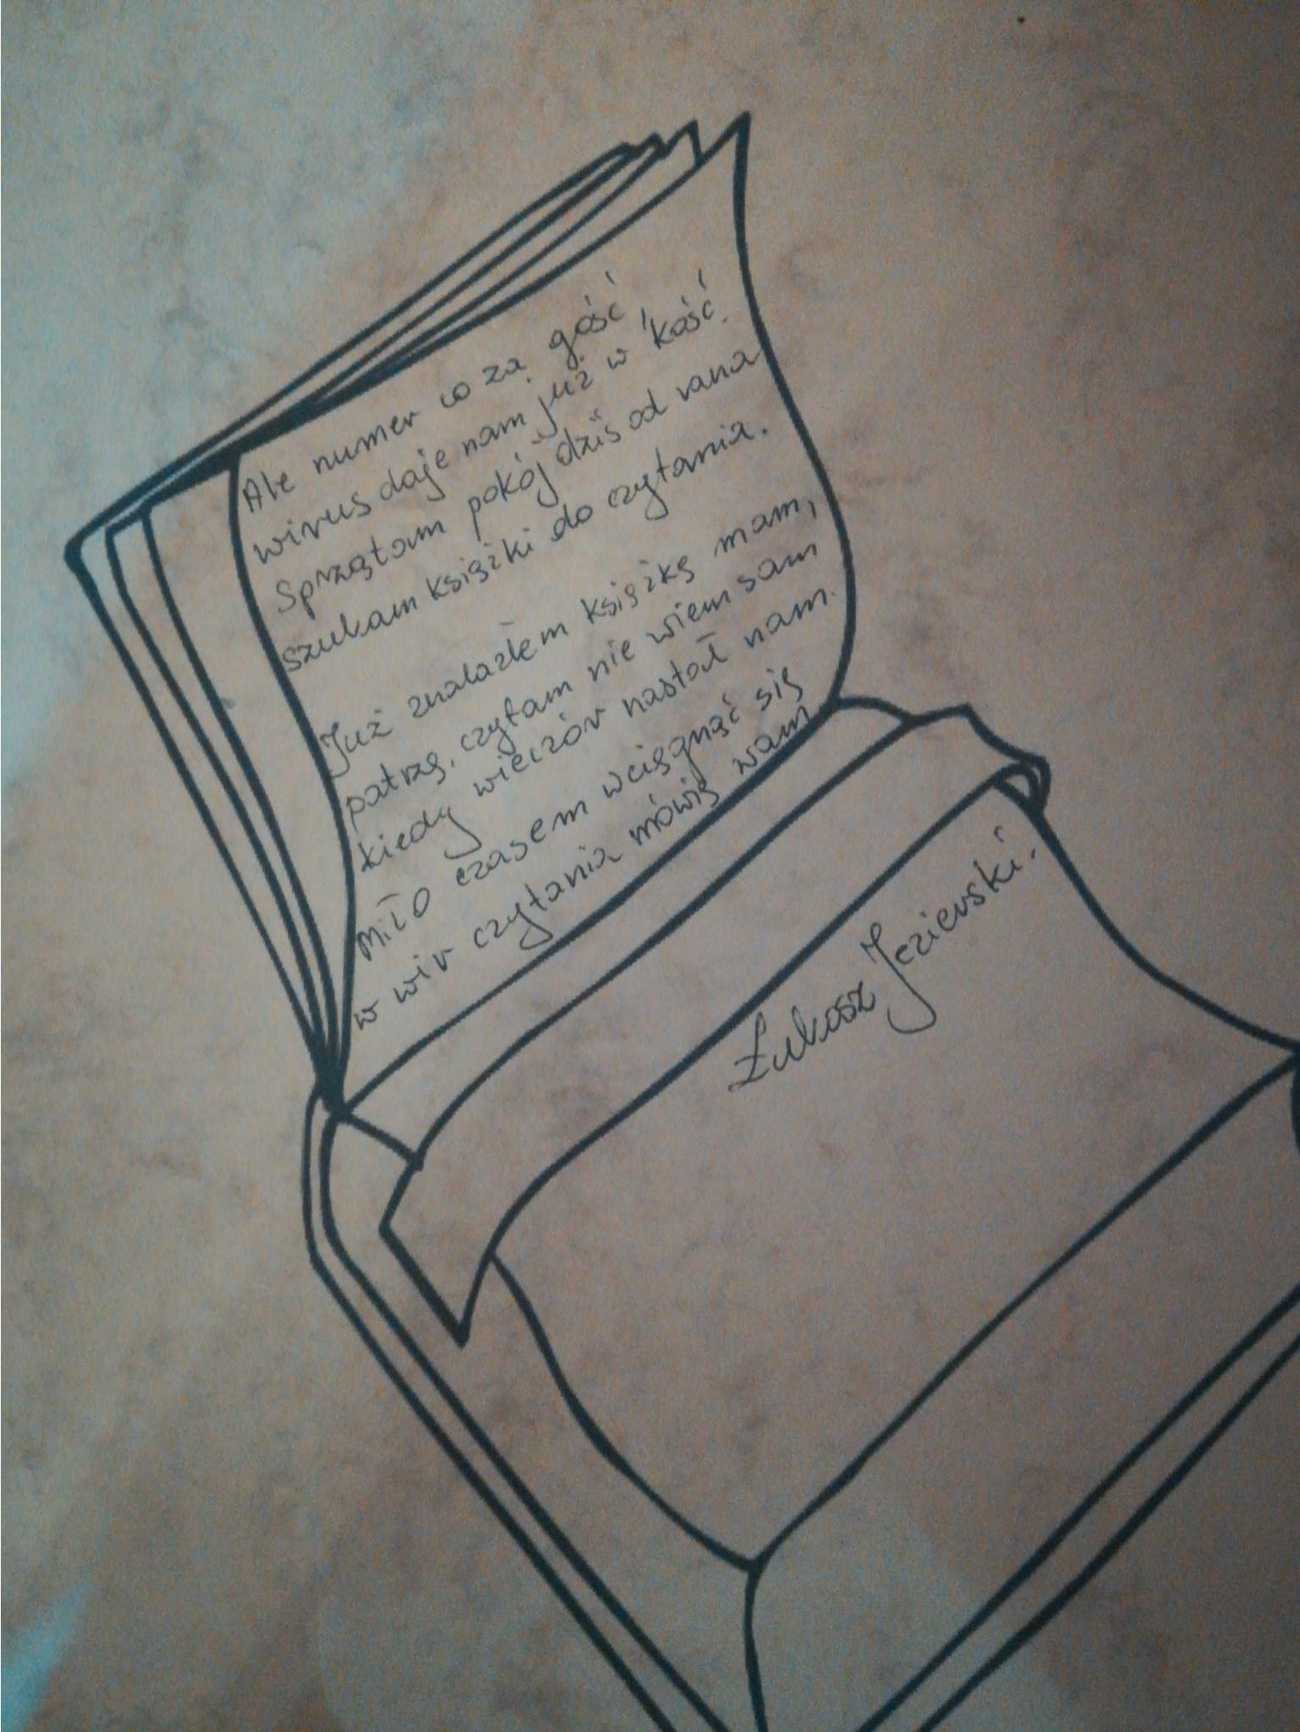 Ale numer co za gość,
wirus daje nam już w kość.
Sprzątam pokój dziś od rana
szukam książki do czytania.
Już znalazłem książkę mam,
patrzę, czytam nie wiem sam
kiedy wieczór nastał nam.
Miło czasem wciągnąć się
w wir czytania mówię wam
Łukasz Jezierski.